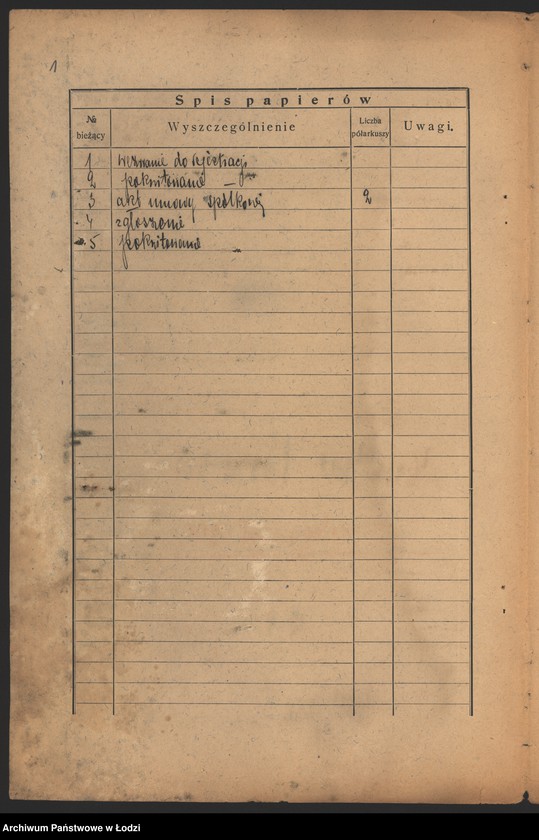 1
Spis papierów
№ bieżący
Wyszczególnienie
Liczba półarkuszy
Uwagi.
1 wezwanie do rejestracji
2 pokwitowanie
3 akt umowy spółkowej 2
4 zgłoszenie
5 pokwitowanie
Archiwum Państwowe w Łodzi